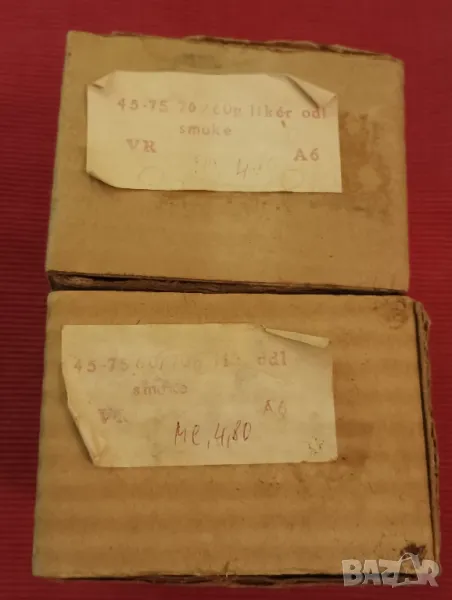 45-75 70/ likér odl
smoke
VR A6
45-75 odl
smoke
VR A6
MC, 4,80
BAZAR